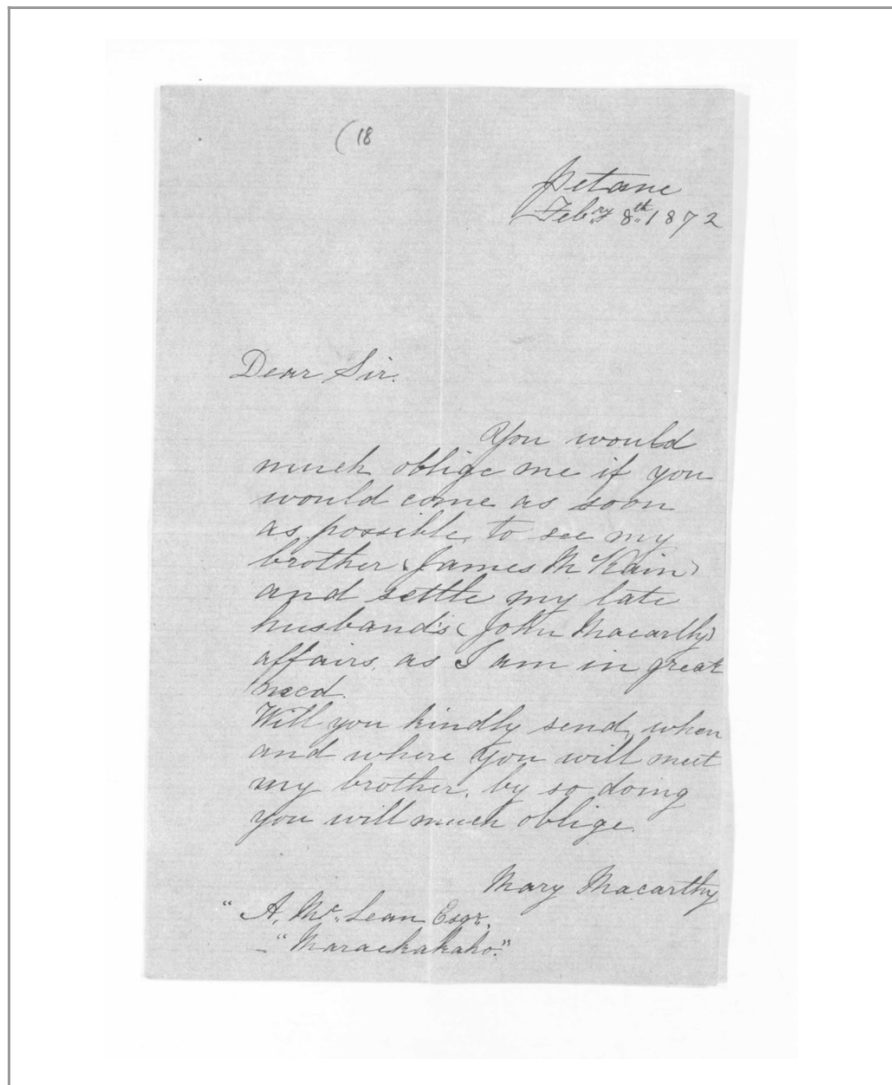 (18
Petane
Feb.ry 8th. 1872
Dear Sir.
You would
much oblige me if you
would come as soon
as possible, to see my
brother (James McKain)
and settle my late
husband's (John Macarthy)
affairs, as I am in great
need.
Will you kindly send, when
and where you will meet
my brother, by so doing
you will much oblige.
Mary Macarthy
"A. Mc.Lean Esqr.
"Maraekakaho."